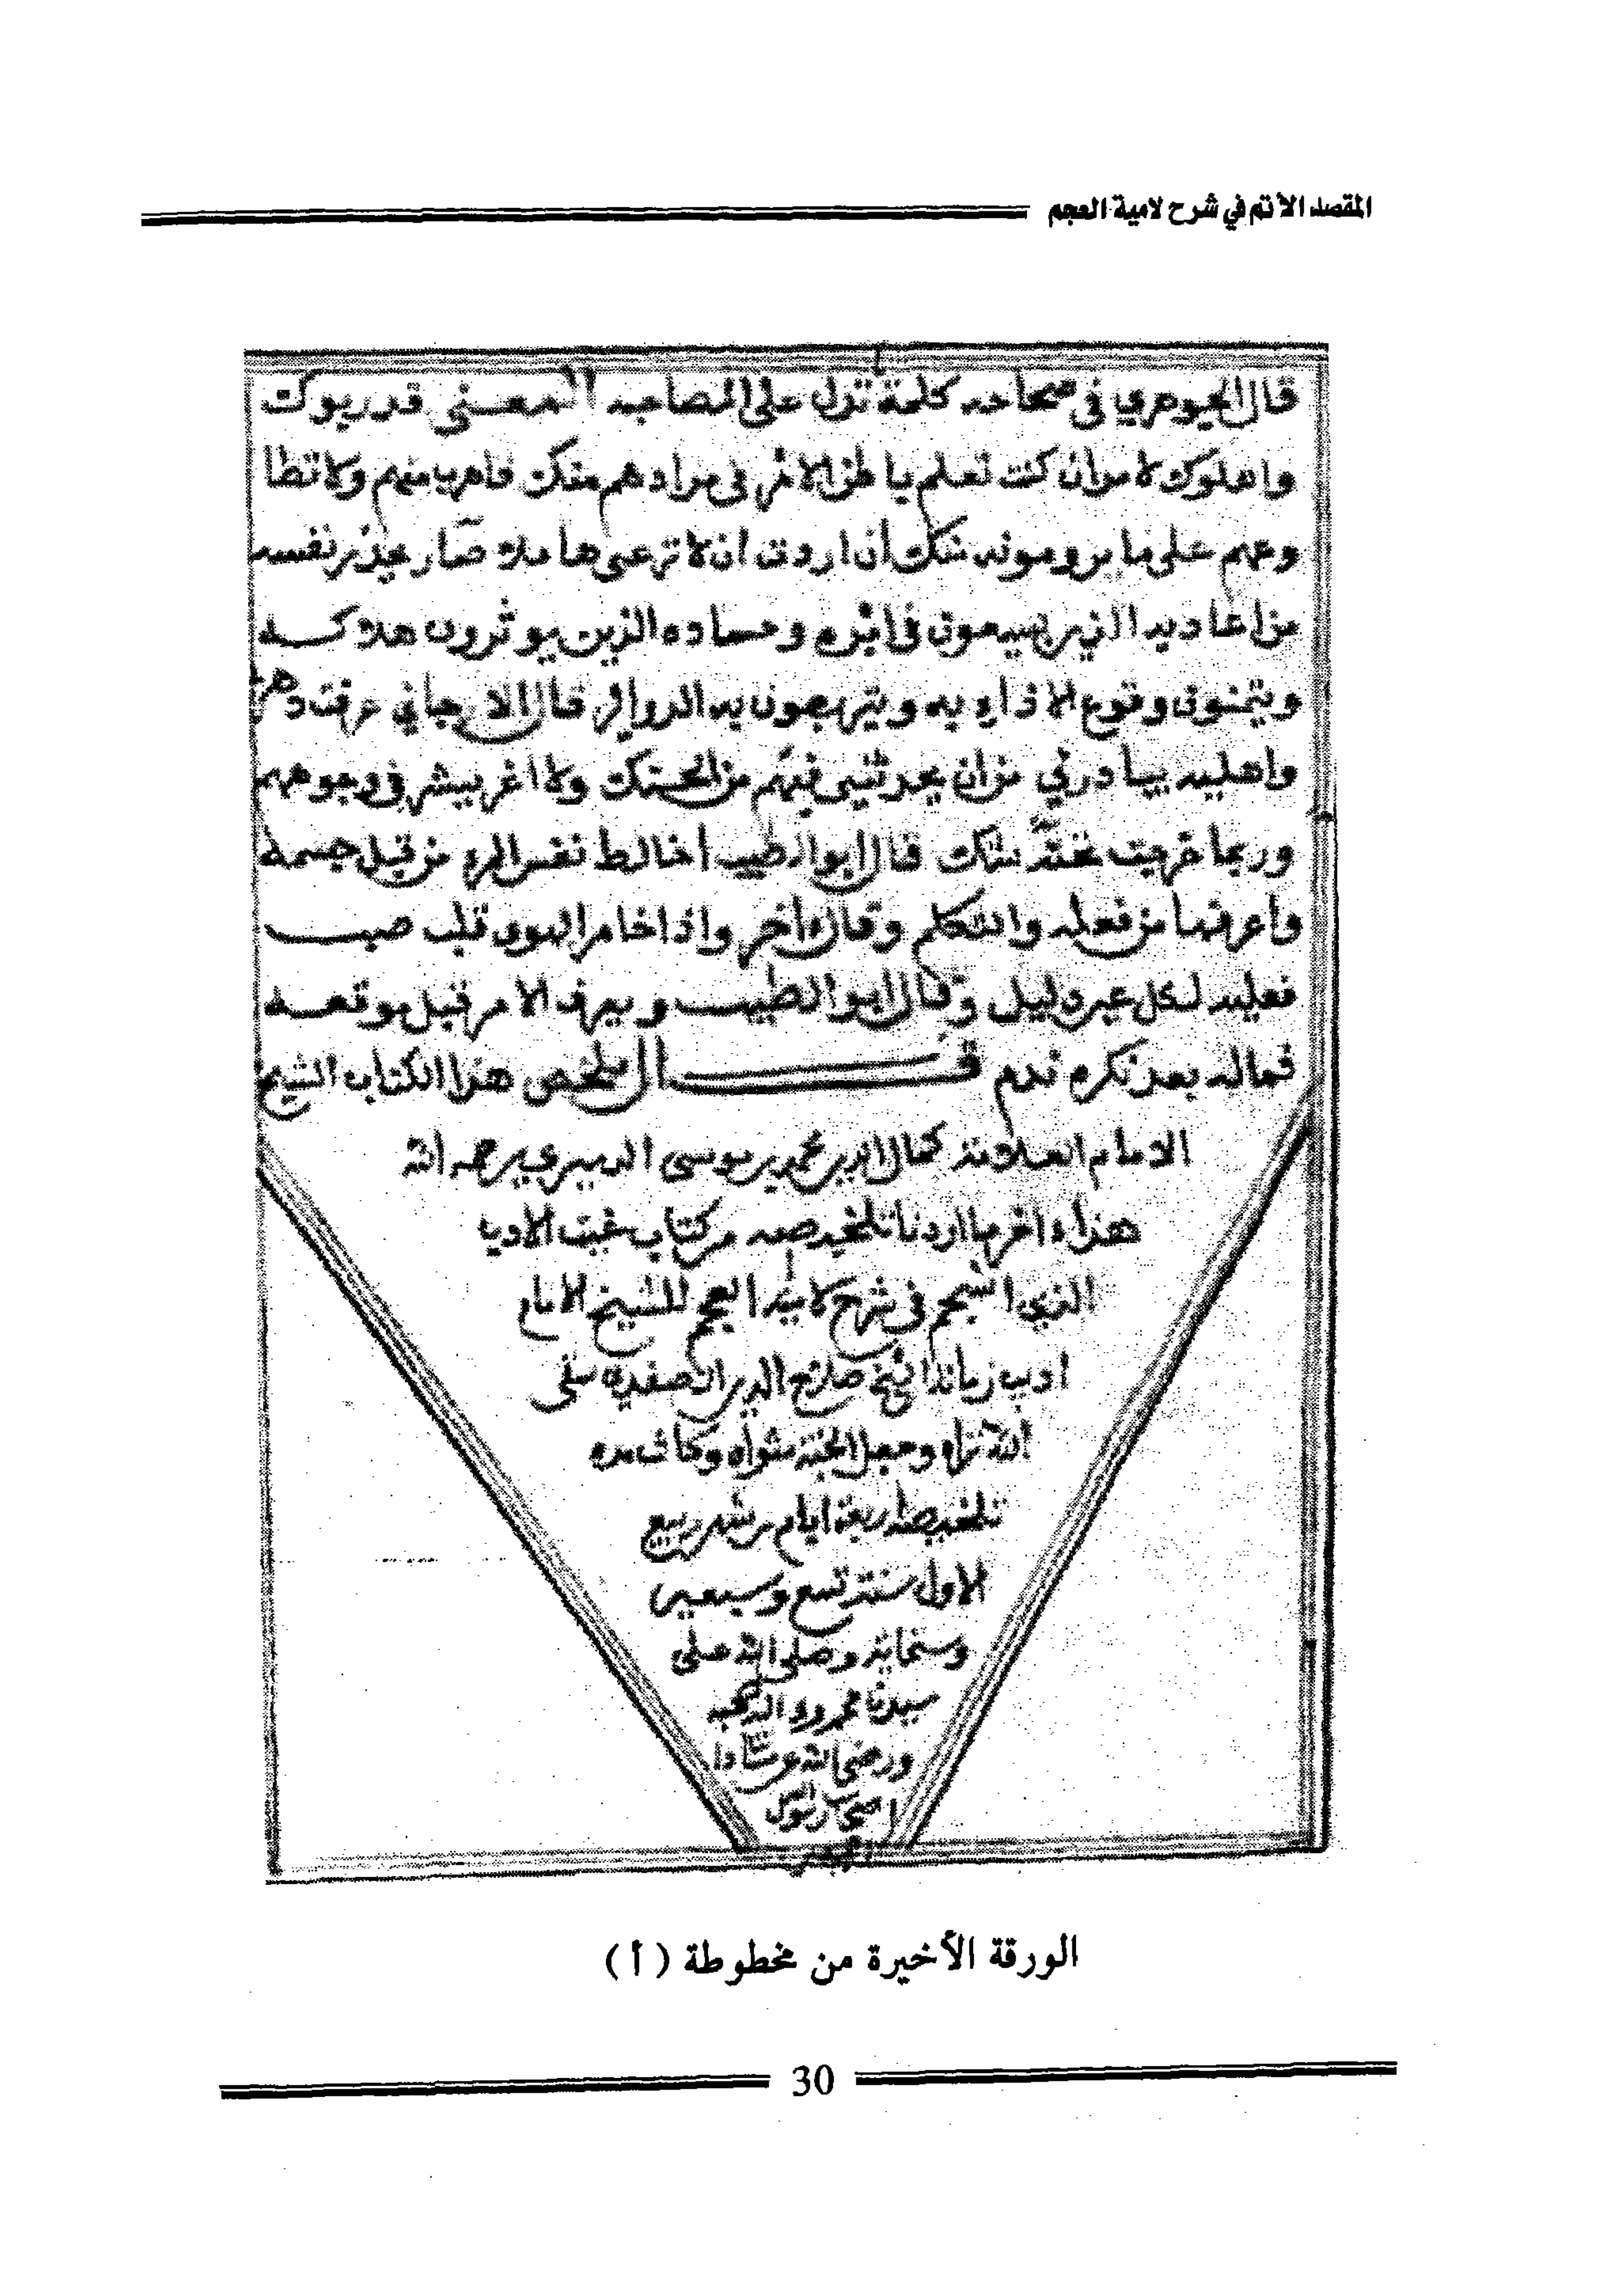 المقصد الأتم في شرح لامية العجم
قال الجوهري في صحاحه كلمة تدل على المصاحبه المعنى قد ربوك
واهلوك لامر ان كنت تعلم باطن الامر في مرادهم منك فاهرب منهم ولا تطا
وعهم على ما يرومونه منك ان اردت ان لا ترعى هاملا صار يحذر نفسه
من اعاديه الذين يسعون في اثره وحساده الذين يوثرون هلاكه
ويتمنون وقوع الاذاء به ويتربصون به الدواير قال الارجاني عرفت دهري
واهليه ببادرتي من ان يحدثني فيهم من الحنك ولا اغر ببشر في وجوههم
وربما تحته شك قال ابو الطيب اخالط نفس المرء من قبل جسمه
واعرفها من فعله والتكلم وقال اخر واذا خامر الهوى قلب صب
فعليه لكل عين دليل وقال ابو الطيب ويعرف الامر قبل موقعه
فماله بعد نكره ندم قال ملخص هذا الكتاب الشيخ
الامام العلامة كمال الدين محمد بن موسى الدميري رحمه الله
هذا ءاخر ما اردنا تلخيصه من كتاب غيث الادب
الذي انسجم في شرح لامية العجم للشيخ الامام
اديب زمانه الشيخ صلاح الدين الصفدي سقى
الله ثراه وجعل الجنة مثواه وكانت مده
تلخيصه اربعة ايام من شهر ربيع
الاول سنة تسع وسبعين
وسبعمائة وصلى الله على
سيدنا محمد وءاله وصحبه
ورضي الله عن سادا
اصحاب رسول
الورقة الأخيرة من مخطوطة (أ)
30